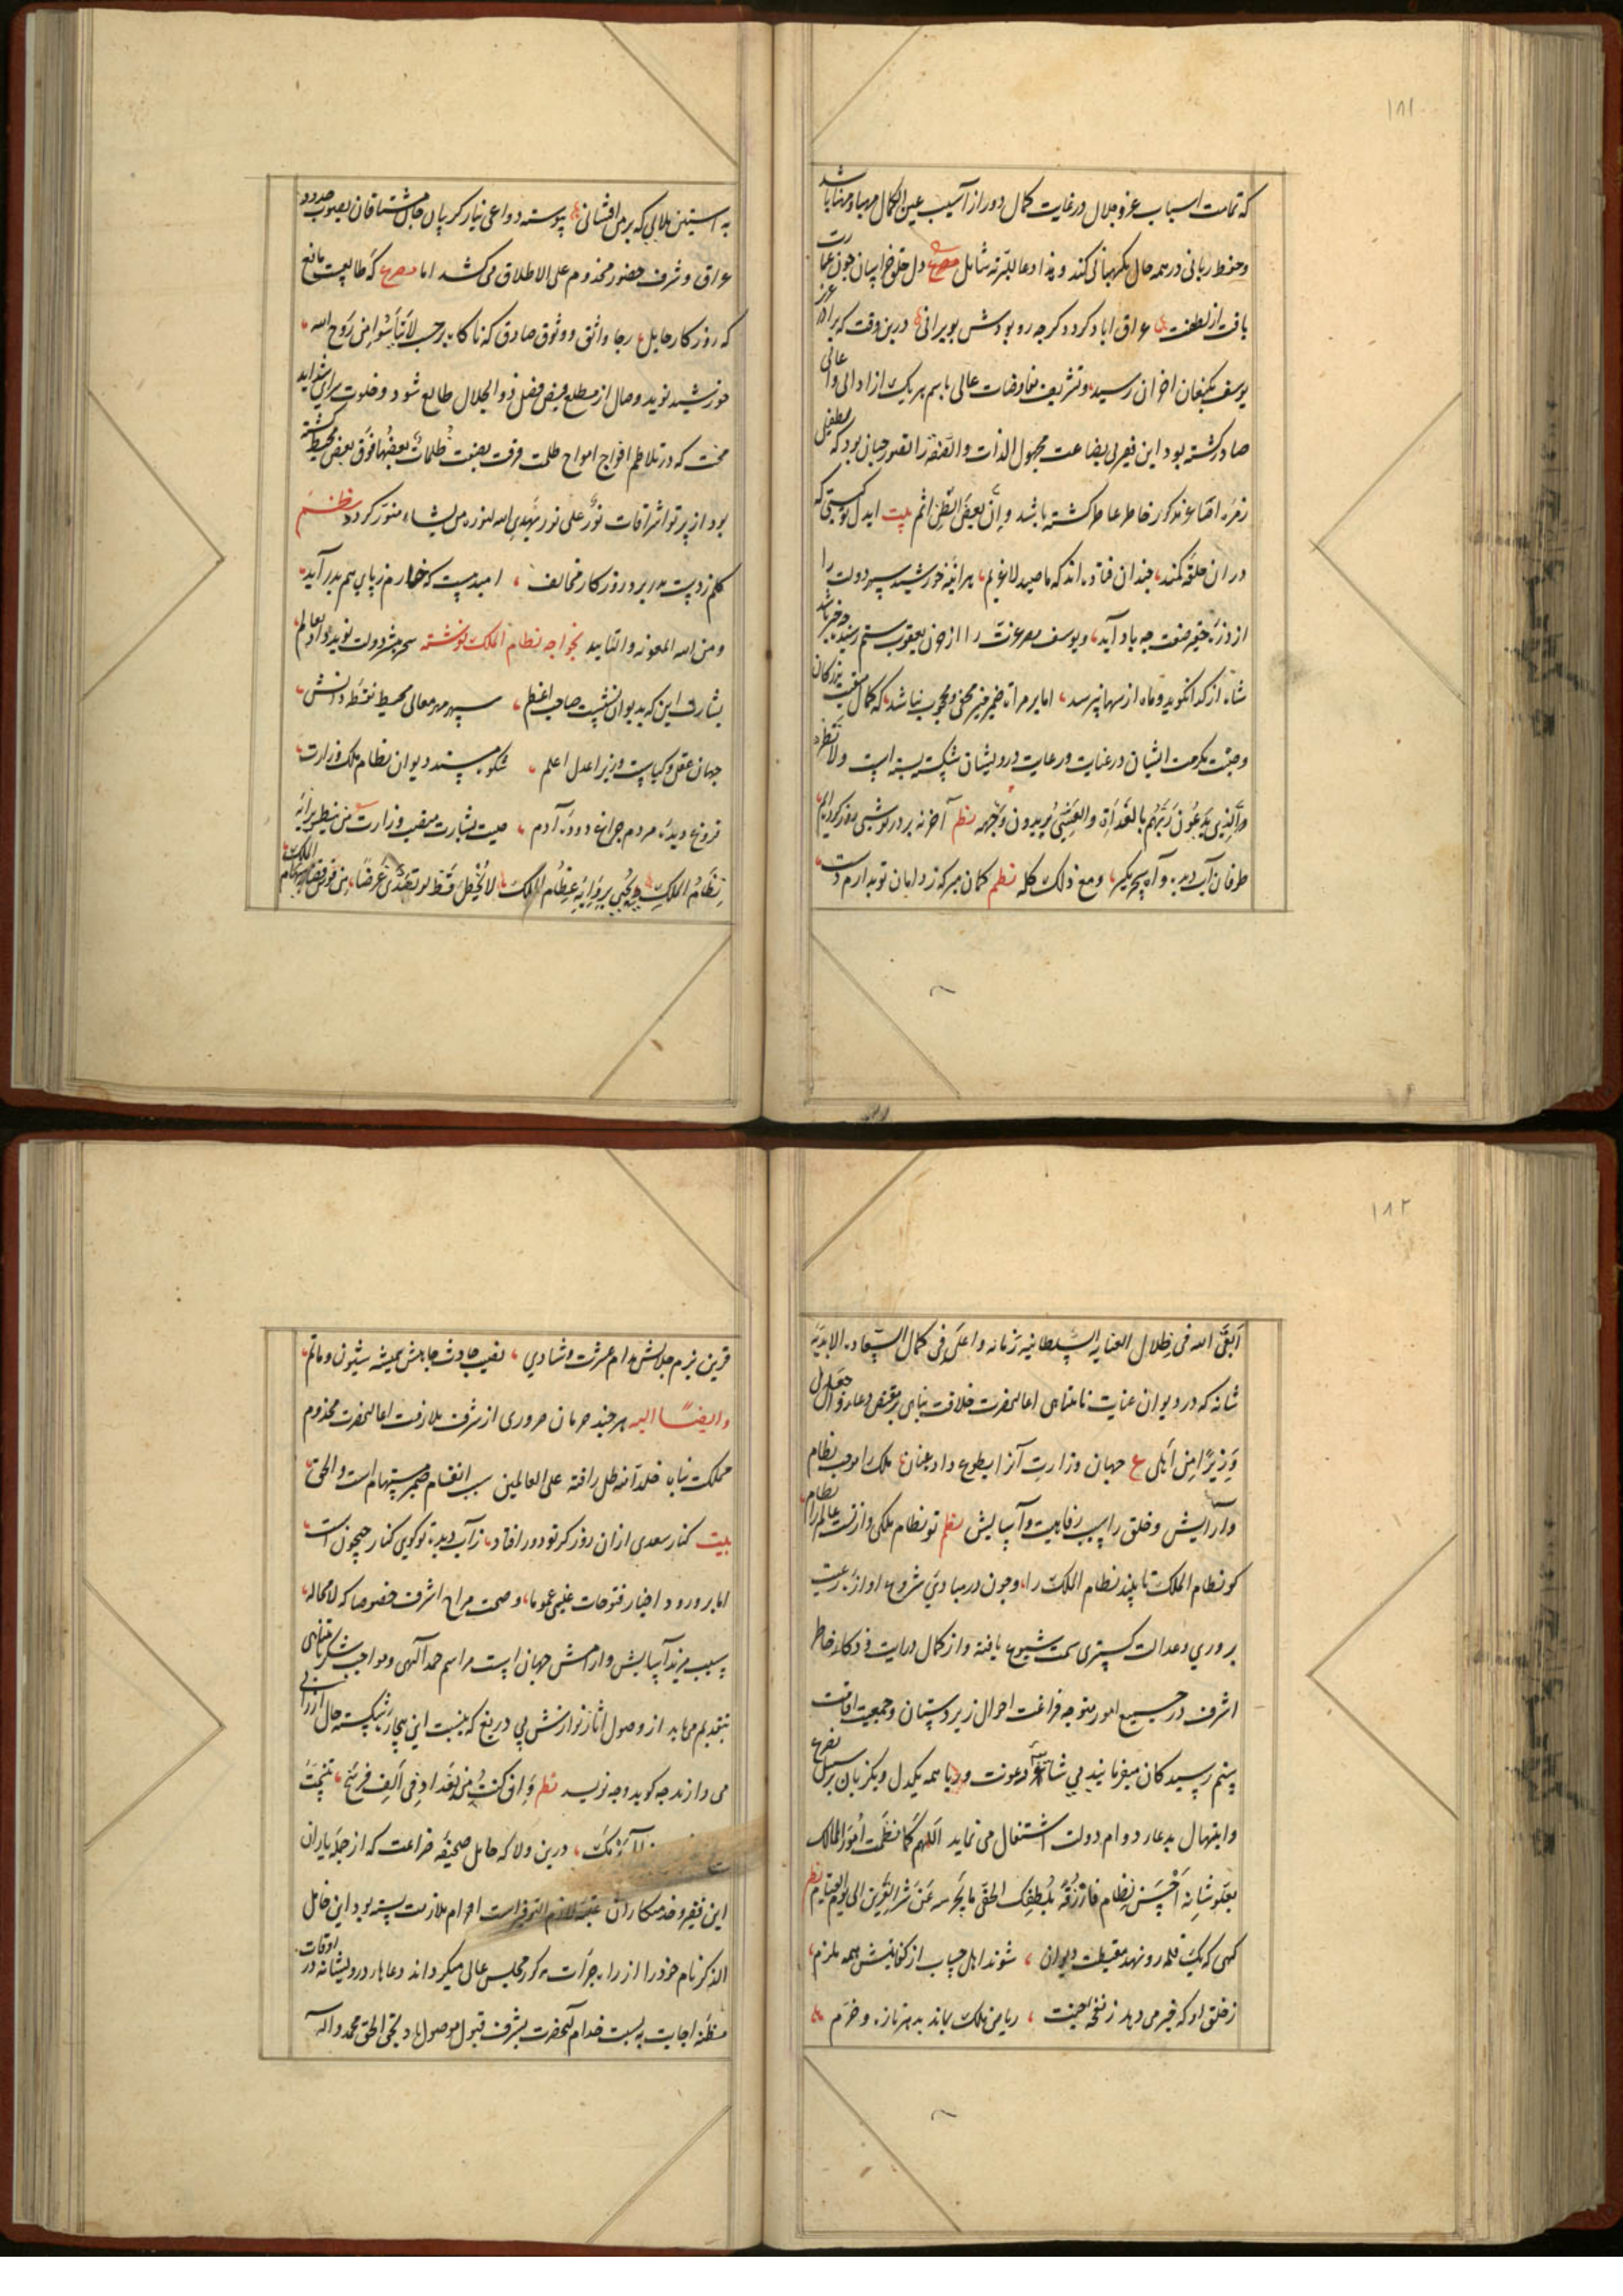 ۱۸۱
که تمامت اسباب عز و جلال در غایت کمال دور از آسیب عین الکمال مهیا و مهنا باشد
و حفظ ربانی در همه حال نکهبانی کند و هذا دعا للبریه شامل مصرع دل خلق خراسان چون عمارت
یافت از لطفت عراق اباد کردد کرچه رو بودش بویرانی درین وقت که برادر عزیز
یوسف بکنعان اخوان رسید و تشریف مفاوضات عالی باسم هر یک از ادالی و اعالی
صادر کشته بود این فقیر بی بضاعت مجهول الذات و الصفه را تصور چنان بود که بطفیل
زمره اصاغر مذکور خاطر عاطر کشته باشد و ان بعض الظن اثم بیت ایدل تو کیستی که
در ان حلقه کمند چندان فتاده اند که ما صید لاغریم هر آینه خورشید سپهر دولت را
از ذره حقیر ضعیف چه یاد آید و یوسف مصر عزت را از حزن یعقوب ستم رسیده چه خبر باشد
شاه از کدا نکوید و ماه از سها نپرسد اما بر مرآة ضمیر منیر مخفی و محجوب نباشد که کمال منقبت بزرکان
و جنت مکرمت ایشان در عنایت و رعایت درویشان شکسته بسته است ولا تطرد
الذین یدعون ربهم بالغداة والعشی یریدون وجهه نظم آخر نه بر در تو شبی روز کرده ایم
طوفان آب دیده و آه سحر بکیر و مع ذلک کله نظم کمان مبر که ز دامان تو بدارم دست
به آستین ملالی که بر من افشانی پیوسته دواعی نیاز کریبان جان مشتاقان بصوب حدود
عراق و شرف حضور مخدوم علی الاطلاق می کشد اما مصرع که طالعیست مانع
که روزکار حایل رجا واثق و وثوق صادق که ناکاه بر حسب لا تیأسوا من روح الله
خورشید نوید وصال از مطلع فیض فضل ذو الجلال طالع شود و خلوت سرای شداید
محنت که در تلاطم افواج امواج ظلمت فرقت بصفت ظلمات بعضها فوق بعض محیط کشته
بود از پرتو اشراقات نور علی نور یهدی الله لنوره من یشاء منور کردد نظم
کلم ز دست بدر برد روزکار مخالف امید هست که خارم ز پای هم بدر آید
و من الله المعونه و التایید بخواجه نظام الملک نوشته سحر مبشر دولت نوید داد بعالم
بشارتی این که بدیوان نشست صاحب اعظم سپهر مهر معالی محیط نقطه دانش
جهان عقل و کیاست وزیر اعدل اعلم شکوه مسند دیوان نظام ملک وزارت
فروغ دیده مردم چراغ دوده آدم صیت بشارت منصب وزارت من ینطیر برایه
نظام الملک و یحیی برؤیه عظام الملک لا یخطی قط لو تصدی غرضا من قوس قضا سهام الملک
۱۸۲
ابقی الله فی ظلال العنایه السلطانیه زمانه و اعلی فی کمال السعاده الابدیه
شانه که در دیوان عنایت نامتناهی اعالیحضرت خلافت پناهی بر مقتضی دعاء و اجعل لی
وزیرا من اهلی ع جهان وزارت آنرا بطوع داد عنان ملک را موجب نظام
و آرایش و خلق را سبب رفاهیت و آسایش نظم تو نظام ملکی و از تست عالم را نظام
کو نظام الملک تا بیند نظام الملک را و چون در مبادی شروع اوازه رعیت
پروری و عدالت کستری سمت شیوع یافته و از کمال درایت و ذکاء خاطر
اشرف در جمیع امور متوجه فراغت احوال زیردستان و جمعیت اوقات
ستم رسیدکان میفرمایند بی شائبه رعونت و ریا همه یکدل و یکزبان بر سبیل تضرع
و ابتهال بدعاء دوام دولت اشتغال می نماید اللهم کما نظمت امور الممالک
بعلو شانه احسن نظام فارزقه بلطفک الخفی ما یحرسه عن شر القرین الی یوم القیام نظم
کهی که یک قلم رو نهد مقبلت دیوان شوند اهل حساب از کفایتش همه ملزم
ز خلق او که خبر می دهد ز نفخه جنت ریاض ملک بماند بدهر تازه و خرم
قرین بزم جلالش مدام عشرت و شادی نصیب حادث جاهش همیشه شیون و ماتم
و ایضا الیه هر چند حرمان ضروری از شرف ملازمت اعالیحضرت مخدوم
مملکت پناه خلد الله ظل رافته علی العالمین سبب انقسام ضمیر مستهام است و الحق
بیت کنار سعدی ازان روز کز تو دور افتاد ز آب دیده تو کویی کنار جیحون است
اما بر ورود اخبار فتوحات غیبی عموما و صحت مزاج اشرف خصوصا که لا محاله
سبب مزید آسایش و ارامش جهان است مراسم حمد آلهی و مواجب شکر نامتناهی
بتقدیم میرساند از وصول آثار نوازش بی دریغ که بنسبت این بیچاره شکسته حال ارزانی
می دارند چه کوید و چه نویسد نظم و ان کنت من بغداد فی الف فرسخ
درین ولا که حامل صحیفه ضراعت که از جمله یاران
این فقیر و خدمتکاران عتبه لازم التوفیر است احرام ملازمت بسته بود این خامل
الذکر نام خود را از راه جرأت مذکور مجلس عالی میکرداند و دعاهاء درویشانه در اوقات
مظنه اجابت به نسبت خدام آنحضرت بشرف قبول موصول باد بحق الحق محمد و آله